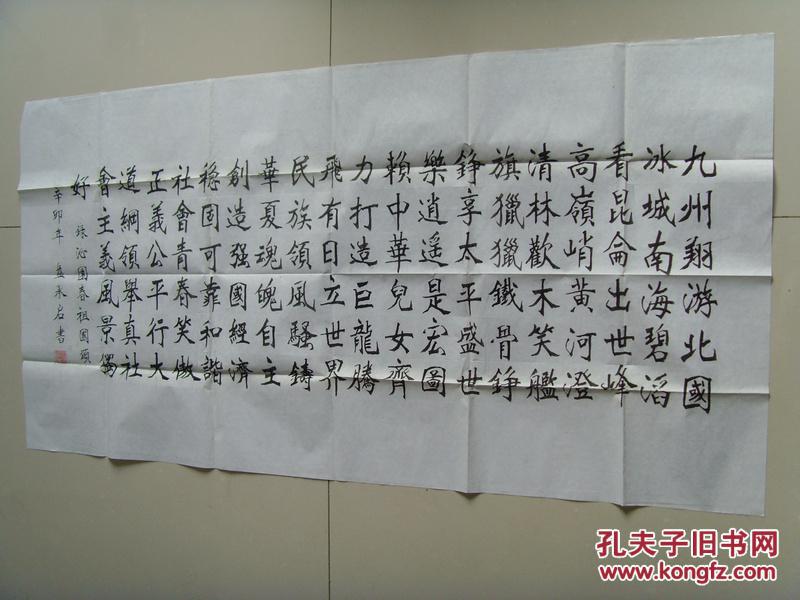 九州翔游北國
冰城南海碧滔
看昆侖出世峰
高嶺峭黄河澄
清林歡木笑艦
旗獵獵鐵骨錚
錚享太平盛世
樂逍遥是宏圖
賴中華兒女齊
力打造巨龍騰
飛有日立世界
民族領風騷鑄
華夏魂魄自主
創造强國經濟
穏固可靠和諧
社會青春笑傲
正義公平行大
道綱領舉真社
會主義風景獨
好
錄沁園春祖國頌
辛卯年 承启書
孔夫子旧书网
www.kongfz.com